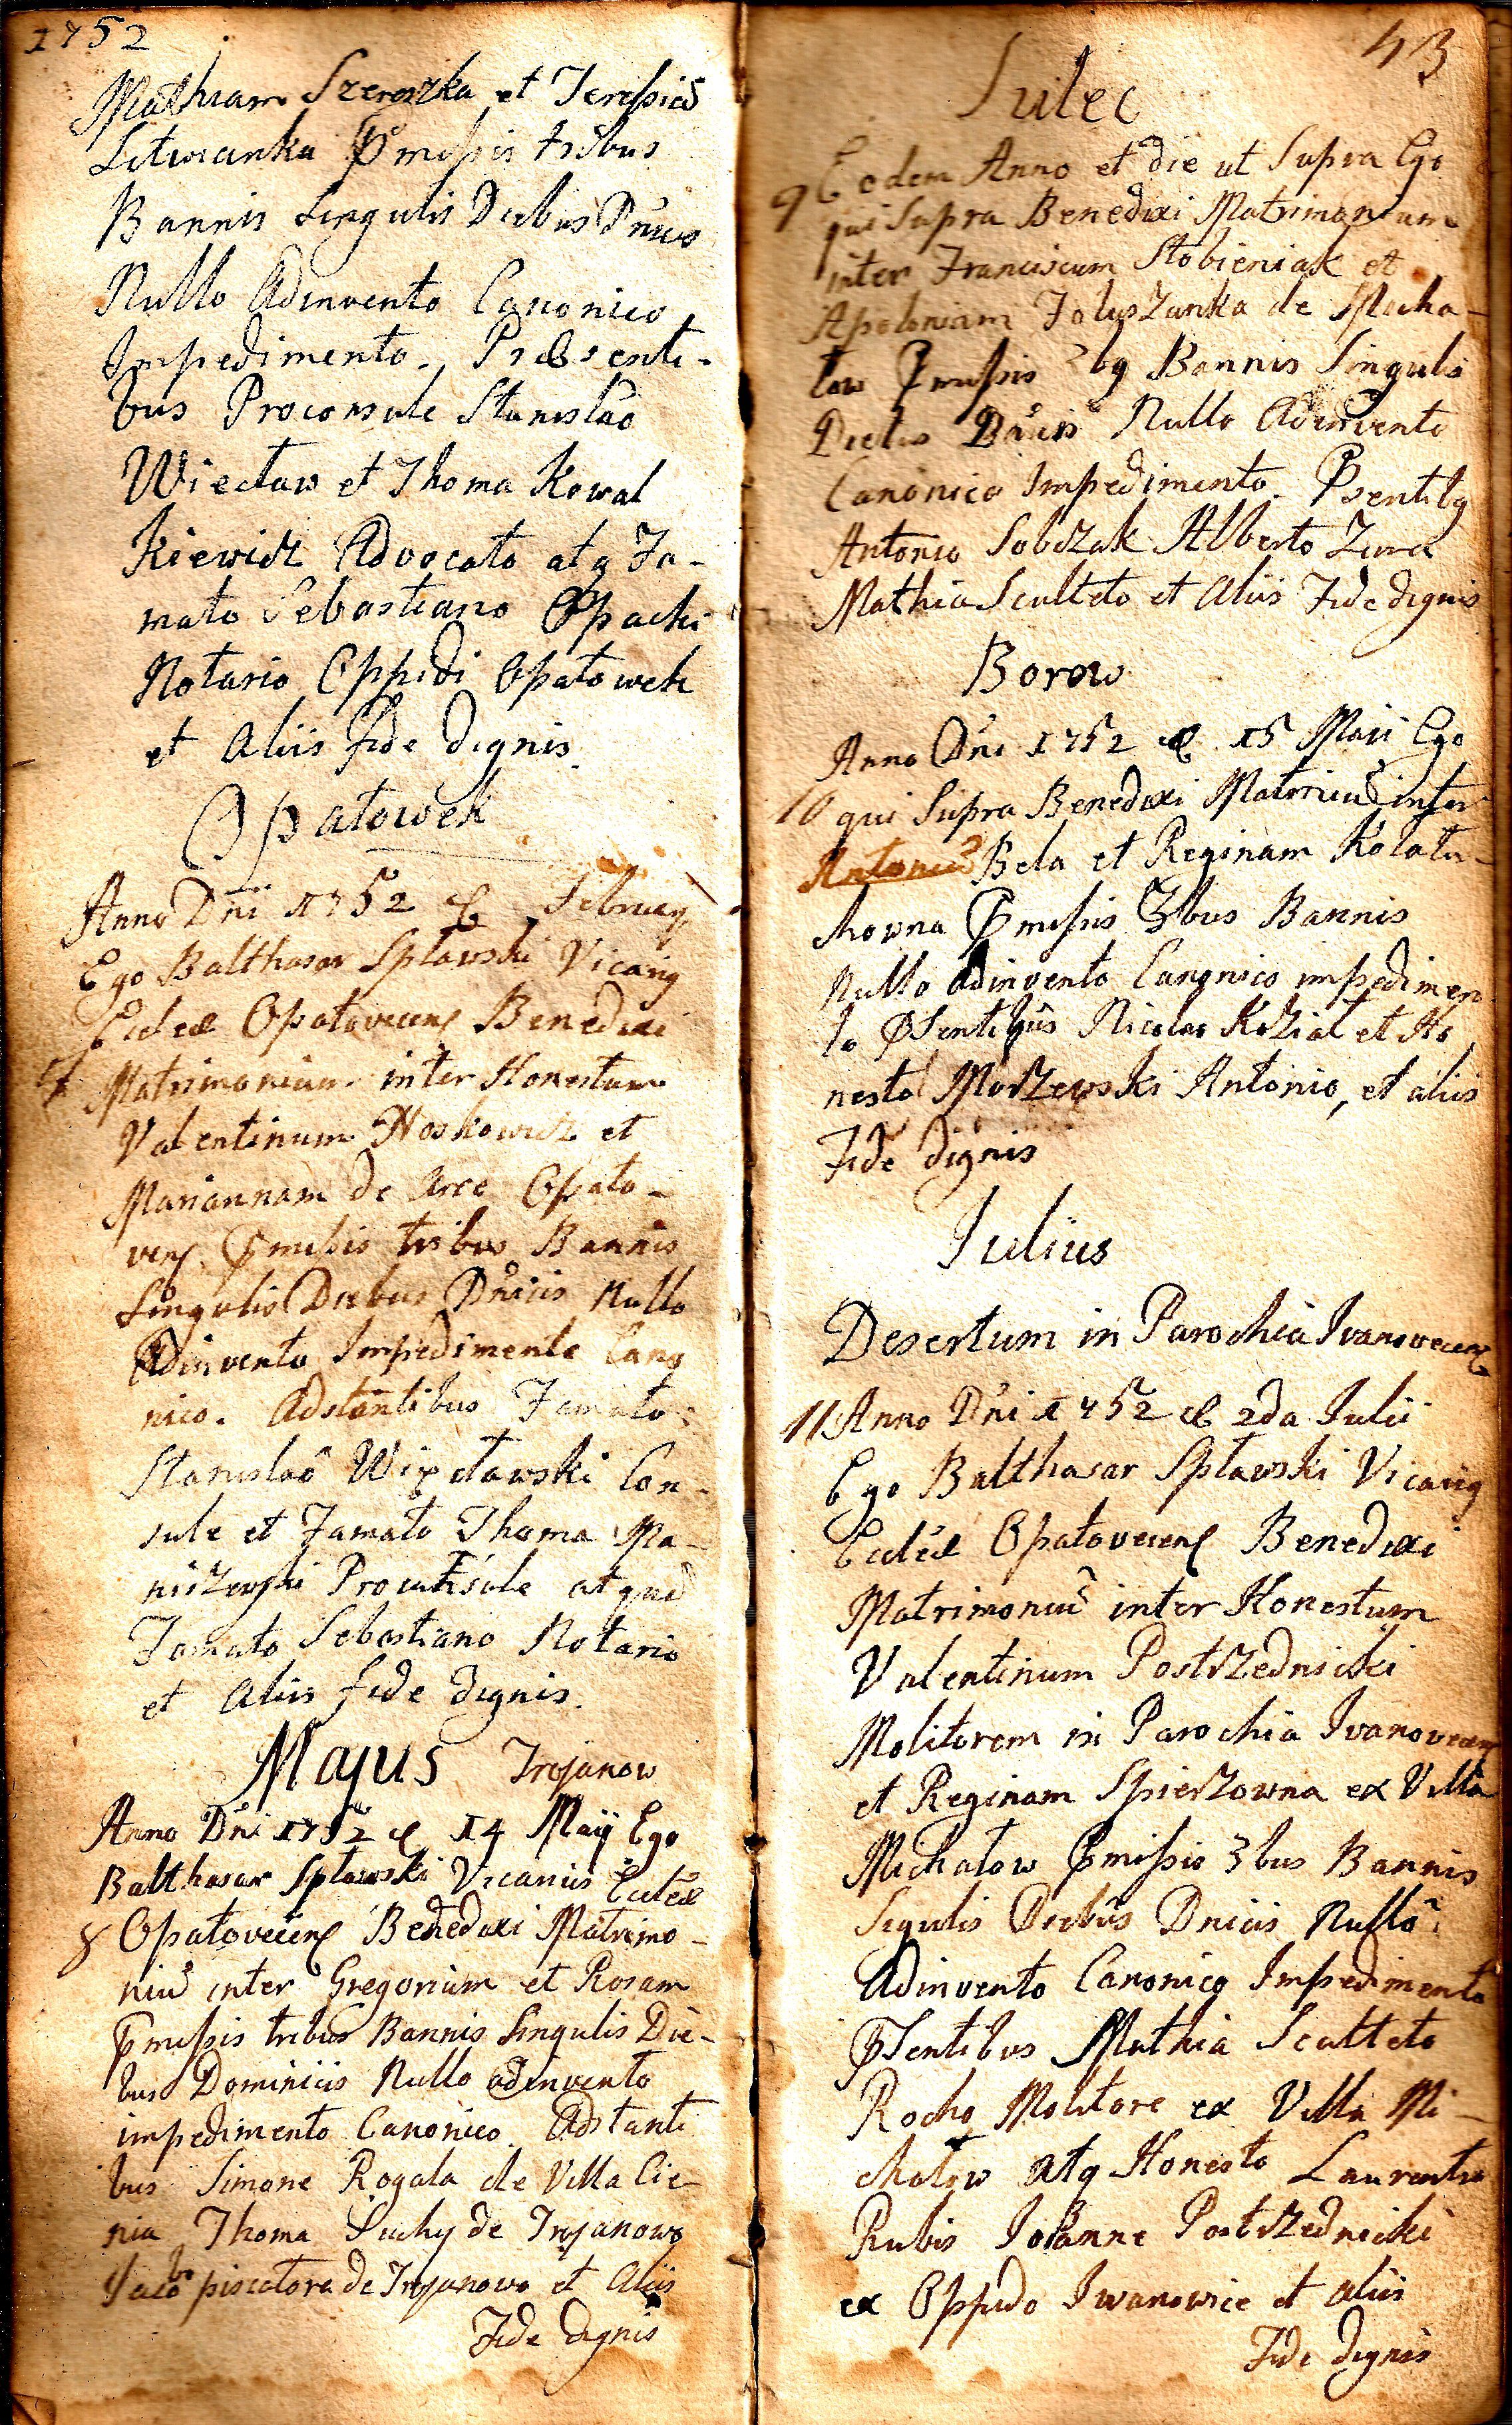 1752
Mathiam Szeroszka et Teressiã
Litwianka Pmissis tribus
Bannis Singulis Diebus Dnicis
Nullo Adinvento Canonico
Impedimento. Præsenti-
bus Proconsule Stanislao
Wiectaw et Thoma Kowal
kiewicz Advocato atq Fa-
mato Sebastiano Opacki
Notario Oppidi Opatowek
et Aliis fide dignis.
Opatowek
Anno Dni 1752 Februarij
Ego Balthasar Spławski Vicariq
Eccleæ Opatovecens Benedixi
7 Matrimonium inter Honestum
Valentinum Noskowicz et
Mariannam de Arce Opato-
vens. Pmissis tribus Bannis
Singulis Diebus Dnicis Nullo
Adinvento Impedimento Cano
nico. Adstantibus Famato
Stanislao Więcławski Con-
sule et Famato Thoma Ma-
atque
Famato Sebastiano Notario
et Aliis fide dignis.
Majus Trojanow
Anno Dni 1752 14 Maij Ego
Balthasar Spławski Vicarius Eccleæ
8 Opatovecens Benedixi Matrimo-
niũ inter Gregorium et Rosam
Pmissis tribus Bannis Singulis Die-
bus Dominicis Nullo adinvento
impedimento Canonico. Adstanti
bus Simone Rogala de Villa Cie-
nia Thoma Suchy de Trojanowo
Jacobo piscatore de Trojanowo et Aliis
Fide dignis
43
Sulec
9 Eodem Anno et die ut Supra Ego
qui Supra Benedixi Matrimonium
inter Franciscum Stobieniak et
Apoloniam de Micha-
low Pmissis 3bq Bannis Singulis
Diebus Dnicis Nullo Adinvento
Canonico Impedimento. Psentibq
Antonio Sobczak Alberto
Mathia Sculteto et Aliis Fide dignis
Borow
Anno Dni 1752 15 Maii Ego
10 qui Supra Benedixi Matriniũ inter
Antoniũ Bela et Reginam Kołatu-
chowna Pmissis 3bus Bannis
Nullo Adinvento Canonico impedimen
to Psentibus Nicolao Kozial et Ho
nesto Morzewski Antonio, et aliis
Fide dignis
Julius
Desertum in Parochia Ivanovecens
11 Anno Dni 1752 2da Julii
Ego Balthasar Spławski Vicariq
Eccleæ Opatovecens Benedixi
Matrimoniũ inter Honestum
Valentinum Postrzednicki
Molitorem in Parochia Ivanovecens
et Reginam Spierzowna ex Villa
Michałow Pmissis 3bus Bannis
Sigulis Diebus Dnicis Nullo
Adinvento Canonico Impedimento
PSentibus Mathia Sculteto
Rocho Molitore ex Villa Mi-
chałow atq Honesto Laurentio
Rubis Joanne Postrzednicki
ex Oppido Iwanowice et aliis
Fide dignis